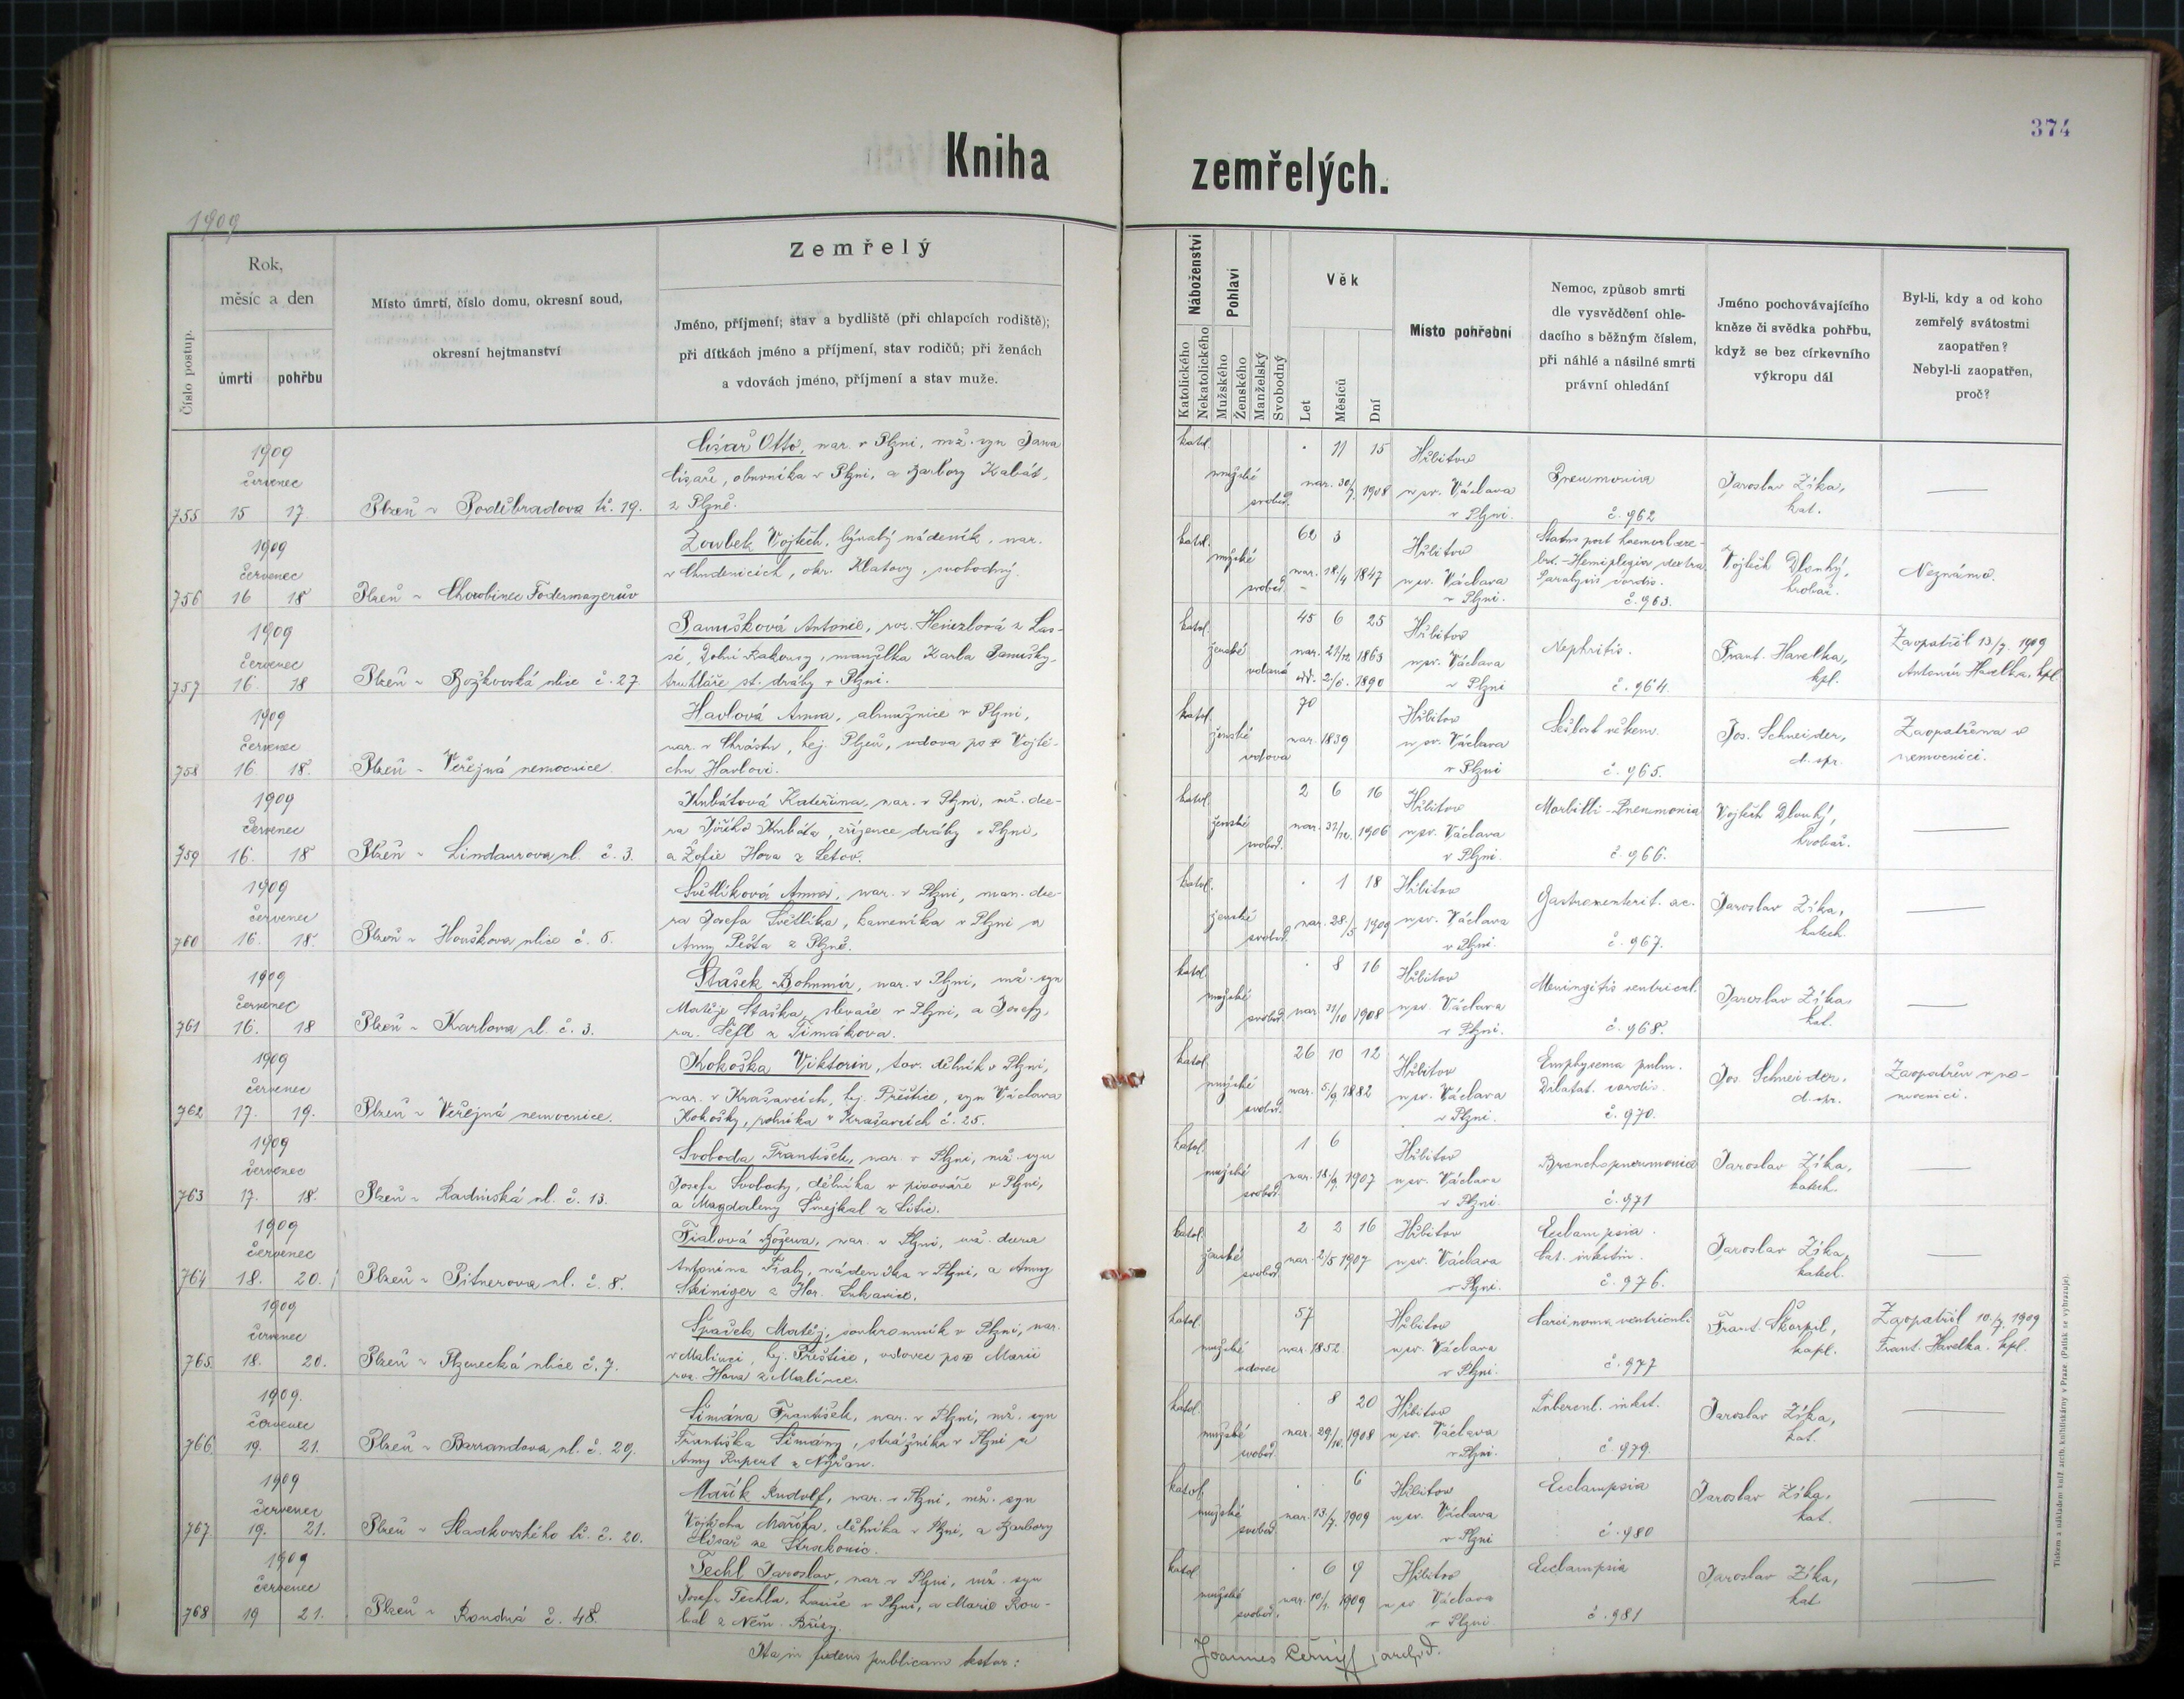 374
Kniha zemřelých.
1909
Číslo postup.
Rok,
měsíc a den
úmrtí
pohřbu
Místo úmrtí, číslo domu, okresní soud,
okresní hejtmanství
Zemřelý
Jméno, příjmení; stav a bydliště (při chlapcích rodiště);
při dítkách jméno a příjmení, stav rodičů; při ženách
a vdovách jméno, příjmení a stav muže.
Náboženství
Katolického
Nekatolického
Pohlaví
Mužského
Ženského
Manželský
Svobodný
Věk
Let
Měsíců
Dní
Místo pohřební
Nemoc, způsob smrti
dle vysvědčení ohle-
dacího s běžným číslem,
při náhlé a násilné smrti
právní ohledání
Jméno pochovávajícího
kněze či svědka pohřbu,
když se bez církevního
výkropu dál
Byl-li, kdy a od koho
zemřelý svátostmi
zaopatřen?
Nebyl-li zaopatřen,
proč?
755
1909
červenec
15 17.
Plzeň - Poděbradova tř. 19.
Otto, nar. v Plzni, mž. syn Jana
obuvníka v Plzni, a Barbory Kabát,
z Plzně.
katol. mužské svobod.
. 11 15
nar. 30/7. 1908
Hřbitov
u sv. Václava
v Plzni.
Pneumonia
č. 962
Jaroslav Zíka,
kat.
756
1909
červenec
16 18
Plzeň - Chorobinec Fodermayerův
Zoubek Vojtěch, bývalý nádeník, nar.
v Chudenicích, okr. Klatovy, svobodný.
katol. mužské svobod.
62 3
nar. 18/4 1847
Hřbitov
u sv. Václava
v Plzni.
Status post haemorr. cere-
bri. - Hemiplegia dextra
Paralysis cordis.
č. 963.
Vojtěch Dlouhý,
hrobař.
Neznámo.
757
1909
červenec
16. 18
Plzeň - Božkovská ulice č. 27.
Panušková Antonie, roz. z Las-
sé, Dolní Rakousy, manželka Karla Panušky,
truhláře st. dráhy v Plzni.
katol. ženské vdaná
45 6 25
nar. 21/12. 1863
odd. 2/6. 1890
Hřbitov
u sv. Václava
v Plzni
Nephritis.
č. 964.
Frant. Havelka,
kpl.
Zaopatřil 13/7. 1909
Antonín Havelka, kpl.
758
1909
červenec
16. 18.
Plzeň - Veřejná nemocnice.
Havlová Anna, almužnice v Plzni,
nar. v Chrástu, hej. Plzeň, vdova po † Vojtě-
chu Havlovi.
katol. ženské vdova
70
nar. 1839
Hřbitov
u sv. Václava
v Plzni
Sešlost věkem.
č. 965.
Jos. Schneider,
d. spr.
Zaopatřena v
nemocnici.
759
1909
červenec
16. 18
Plzeň - Lindaurova ul. č. 3.
Kubátová Kateřina, nar. v Plzni, mž. dce-
ra Jiřího Kubáta, zřízence dráhy v Plzni,
a Žofie Hora z Letov.
katol. ženské svobod.
2 6 16
nar. 31/12. 1906
Hřbitov
u sv. Václava
v Plzni.
Morbilli - Pneumonia
č. 966.
Vojtěch Dlouhý,
hrobař.
760
1909
červenec
16. 18.
Plzeň - Houškova ulice č. 6.
Světlíková Anna, nar. v Plzni, man. dce-
ra Josefa Světlíka, kameníka v Plzni a
Anny Pešta z Plzně.
katol. ženské svobod.
. 1 18
nar. 28./5 1909
Hřbitov
u sv. Václava
v Plzni.
Gastroenterit. ac.
č. 967.
Jaroslav Zíka,
katech.
761
1909
červenec
16. 18
Plzeň - Karlova ul. č. 3.
Stašek Bohumír, nar. v Plzni, mž. syn
Matěje Staška, slevače v Plzni, a Josefy,
roz. Šefl z Šimákova.
katol. mužské svobod.
. 8 16
nar. 31/10 1908
Hřbitov
u sv. Václava
v Plzni.
Meningitis ventricul.
č. 968.
Jaroslav Zíka
kat.
762
1909
červenec
17. 19.
Plzeň - Veřejná nemocnice.
Kokoška Viktorin, tov. dělník v Plzni,
nar. v Krašovcích, hej. Přeštice, syn Václava
Kokošky, rolníka v Krašovcích č. 25.
katol. mužské svobod.
26 10 12
nar. 5/9 1882
Hřbitov
u sv. Václava
v Plzni.
Emphysema pulm.
Dilatat. cordis.
č. 970.
Jos. Schneider,
d. spr.
Zaopatřen v ne-
mocnici.
763
1909
červenec
17. 18.
Plzeň - Radčická ul. č. 13.
Svoboda František, nar. v Plzni, mž. syn
Josefa Svobody, dělníka v pivováře v Plzni,
a Magdaleny Smejkal z Litic.
katol. mužské svobod.
1 6
nar. 1907
Hřbitov
u sv. Václava
v Plzni.
Bronchopneumonie
č. 971
Jaroslav Zíka,
katech.
764
1909
červenec
18. 20.
Plzeň - Pitnerova ul. č. 8.
Fialová Božena, nar. v Plzni, mž. dcera
Antonína Fialy, nádeníka v Plzni, a Anny
Steiniger z Hor. Lukavice.
katol. ženské svobod.
2 2 16
nar. 2/5 1907
Hřbitov
u sv. Václava
v Plzni.
Eclampsia.
Cat. intestin.
č. 976.
Jaroslav Zíka,
katech.
765
1909
červenec
18. 20.
Plzeň - Plzenecká ulice č. 7.
Špaček Matěj, soukromník v Plzni, nar.
v Malinci, hej. Přeštice, vdovec po † Marii
roz. Hora z Malince.
katol. mužské vdovec
57
nar. 1852.
Hřbitov
u sv. Václava
v Plzni.
Carcinoma ventricul.
č. 977
Frant. Škarpil,
kapl.
Zaopatřil 10./7. 1909
Frant. Havelka. kpl.
766
1909.
červenec
19. 21.
Plzeň - Barrandova ul. č. 29.
Šimána František, nar. v Plzni, mž. syn
Františka Šimány, strážníka v Plzni a
Anny Rupert z Nýřan.
katol. mužské svobod.
. 8 20
nar. 29/10. 1908
Hřbitov
u sv. Václava
v Plzni.
Tubercul. intest.
č. 979.
Jaroslav Zíka,
kat.
767
1909
červenec
19. 21.
Plzeň - Sladkovského tř. č. 20.
Mařík Rudolf, nar. v Plzni, mž. syn
Vojtěcha Maříka, dělníka v Plzni, a Barbory
Císař ze Strakonic.
katol. mužské svobod.
. . 6
nar. 13/7. 1909
Hřbitov
u sv. Václava
v Plzni
Eclampsia
č. 980
Jaroslav Zíka,
kat.
768
1909
červenec
19 21.
Plzeň - Roudná č. 48.
Techl Jaroslav, nar. v Plzni, mž. syn
Josefa Techla, v Plzni, a Marie Rou-
bal z Něm. Břízy.
katol. mužské svobod.
. 6 9
nar. 10/1. 1909
Hřbitov
u sv. Václava
v Plzni
Eclampsia
č. 981
Jaroslav Zíka,
kat.
Ita in fidem publicam testor:
Joannes Černý, archid.